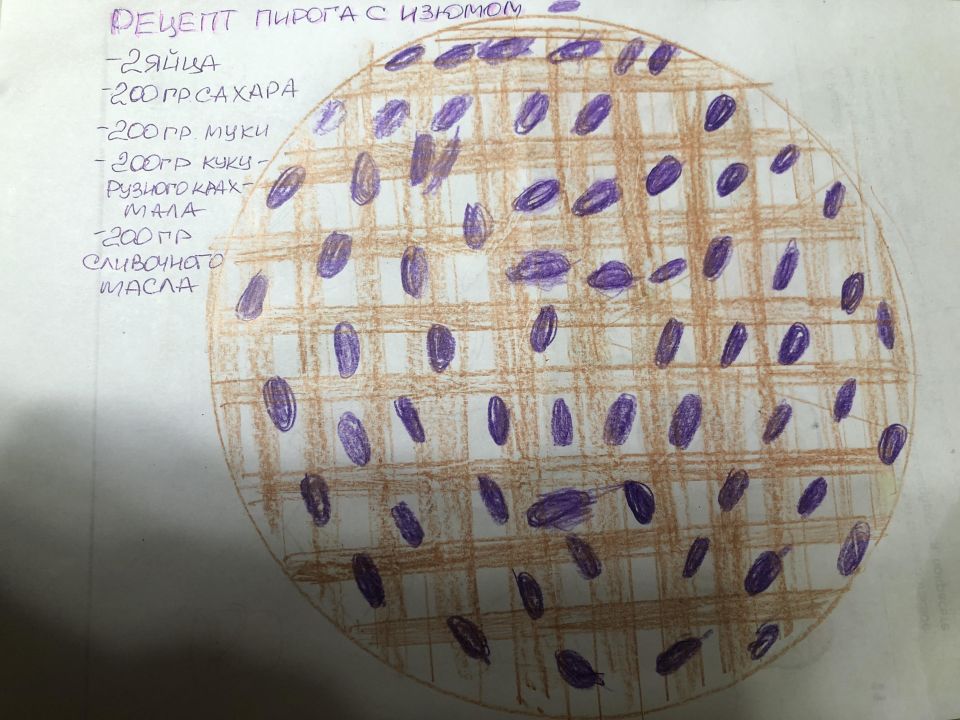 РЕЦЕПТ ПИРОГА С ИЗЮМОМ
-2 ЯЙЦА
-200 ГР. САХАРА
-200 ГР. МУКИ
-200 ГР КУКУ-
РУЗНОГО КРАХ-
МАЛА
-200 ГР
СЛИВОЧНОГО
МАСЛА